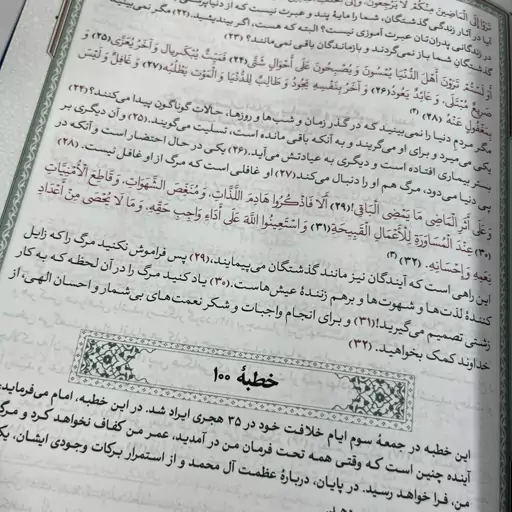 تَرَوْا إِلَى الْمَاضِينَ مِنْكُمْ لَا يَرْجِعُونَ، وَإِلَى
آیا در آثار گذشتگان، شما را مایهٔ پند و عبرت نیست که از دنیاپرستی
در زندگانی پدرانتان عبرت آموزی نیست؟ البته که هست، اگر بیندیشید. (۲۲) مگر نمی‌بینید
گذشتگان شما باز نمی‌گردند و بازماندگان باقی نمی‌مانند؟ (۲۳)
أَوَ لَسْتُمْ تَرَوْنَ أَهْلَ الدُّنْيَا يُمْسُونَ وَ يُصْبِحُونَ عَلَى أَحْوَالٍ شَتَّى (۲۴) فَمَيِّتٌ يُبْكَى، وَ آخَرُ يُعَزَّى (۲۵) وَ
صَرِيعٌ مُبْتَلًى، وَ عَائِدٌ يَعُودُ (۲۶) وَ آخَرُ بِنَفْسِهِ يَجُودُ وَ طَالِبٌ لِلدُّنْيَا وَ الْمَوْتُ يَطْلُبُهُ (۲۷) وَ غَافِلٌ وَ لَيْسَ
بِمَغْفُولٍ عَنْهُ (۲۸) (۲)
مگر مردم دنیا را نمی‌بینید که در گذر زمان و شب‌ها و روزها، حالات گوناگون پیدا می‌کنند؟ (۲۴)
یکی می‌میرد و برای او می‌گریند و به آنکه باقی مانده است، تسلیت می‌گویند. (۲۵) و آن دیگری بر
بستر بیماری افتاده است و دیگری به عیادتش می‌آید. (۲۶) یکی در حال احتضار است و آنکه در
پی دنیا می‌دود، مرگ هم او را دنبال می‌کند (۲۷) او غافلی است که مرگ از او غافل نیست. (۲۸)
وَ عَلَى أَثَرِ الْمَاضِي مَا يَمْضِي الْبَاقِي! (۲۹) أَلَا فَاذْكُرُوا هَادِمَ اللَّذَّاتِ، وَ مُنَغِّصَ الشَّهَوَاتِ، وَ قَاطِعَ الْأُمْنِيَّاتِ
(۳۰) عِنْدَ الْمُسَاوَرَةِ لِلْأَعْمَالِ الْقَبِيحَةِ (۳۱) وَ اسْتَعِينُوا اللَّهَ عَلَى أَدَاءِ وَاجِبِ حَقِّهِ، وَ مَا لَا يُحْصَى مِنْ أَعْدَادِ
نِعَمِهِ وَ إِحْسَانِهِ. (۳۲) (۳)
این راهی است که آیندگان نیز مانند گذشتگان می‌پیمایند، (۲۹) پس فراموش نکنید مرگ را که زایل
کنندهٔ لذت‌ها و شهوت‌ها و برهم زنندهٔ عیش‌هاست. (۳۰) یاد کنید مرگ را در آن لحظه که به کار
زشتی تصمیم می‌گیرید! (۳۱) و برای انجام واجبات و شکر نعمت‌های بی‌شمار و احسان الهی، از
خداوند کمک بخواهید. (۳۲)
خطبهٔ ۱۰۰
این خطبه در جمعهٔ سوم ایام خلافت خود در ۳۵ هجری ایراد شد. در این خطبه، امام می‌فرماید
آینده چنین است که وقتی همه تحت فرمان من در آمدید، عمر من کفاف نخواهد کرد و مرگ
من، فرا خواهد رسید. در پایان، دربارهٔ عظمت آل محمد و از استمرار برکات وجودی ایشان،